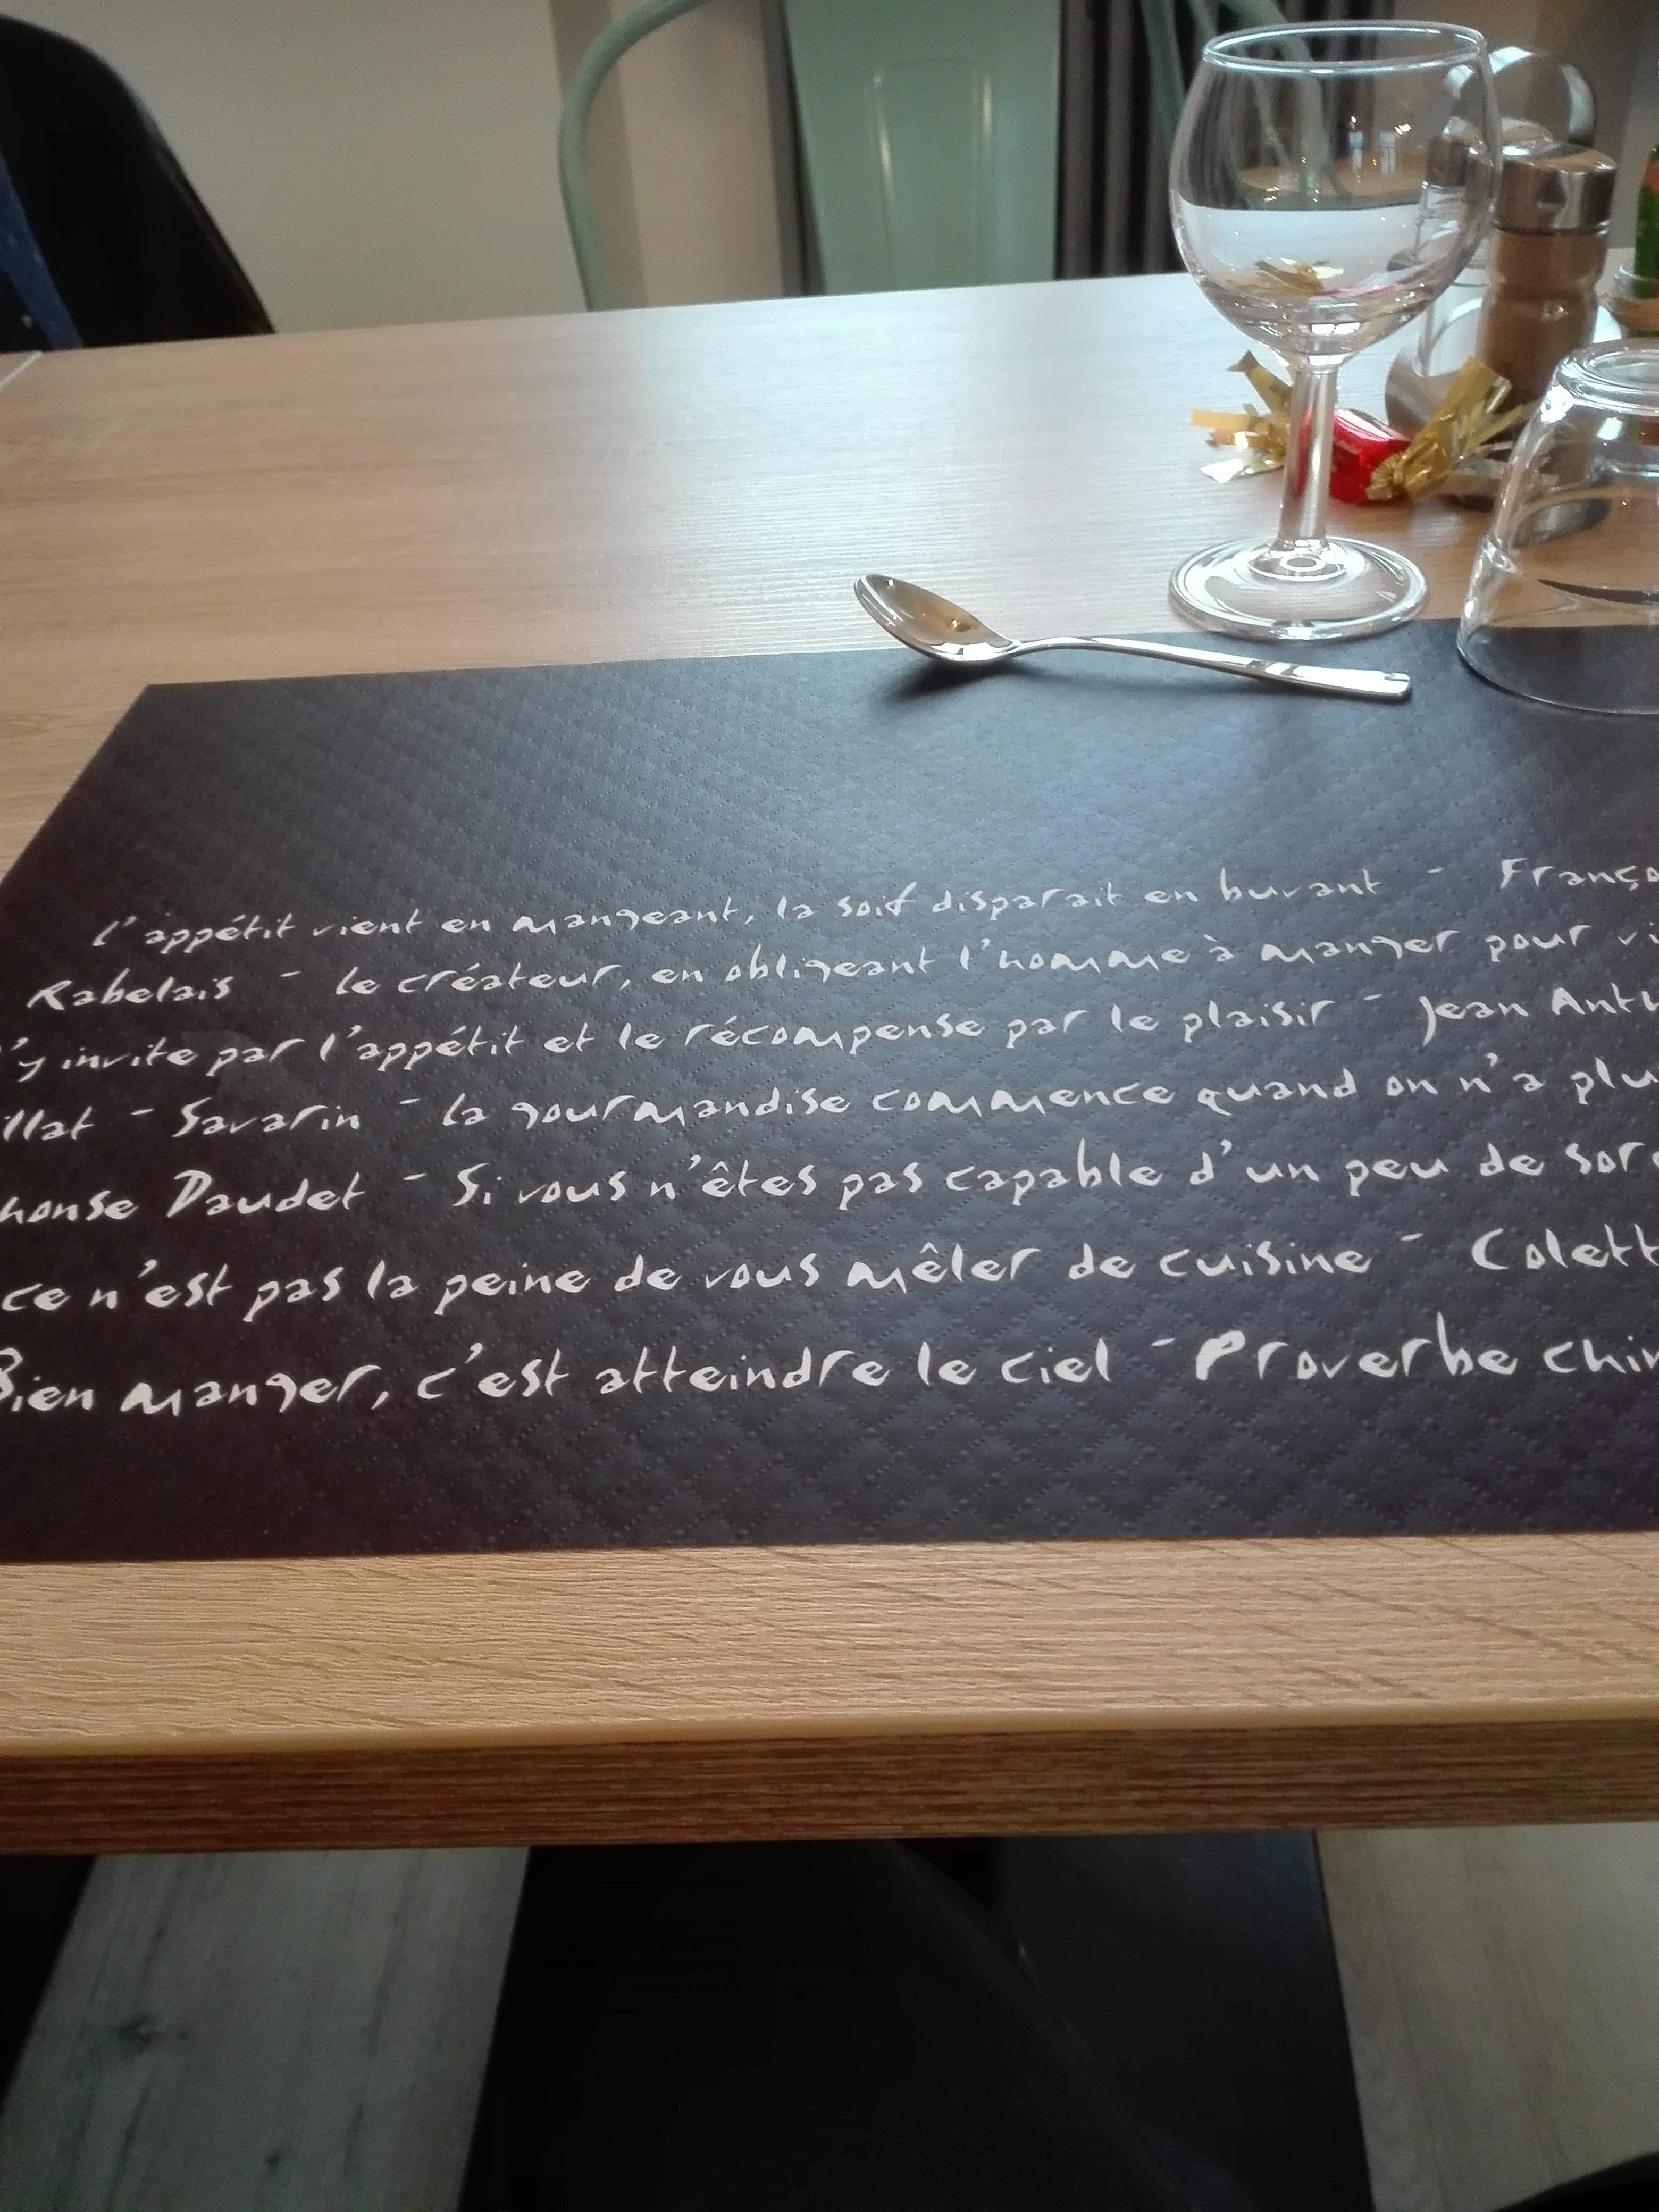 L'appétit vient en mangeant, la soif disparait en buvant - Franço
Rabelais - le créateur, en obligeant l'homme à manger pour vi
'y invite par l'appétit et le récompense par le plaisir - Jean Anth
illat - Savarin - la gourmandise commence quand on n'a plu
honse Daudet - Si vous n'êtes pas capable d'un peu de sorc
ce n'est pas la peine de vous mêler de cuisine - Colett
Bien manger, c'est atteindre le ciel - Proverbe chin